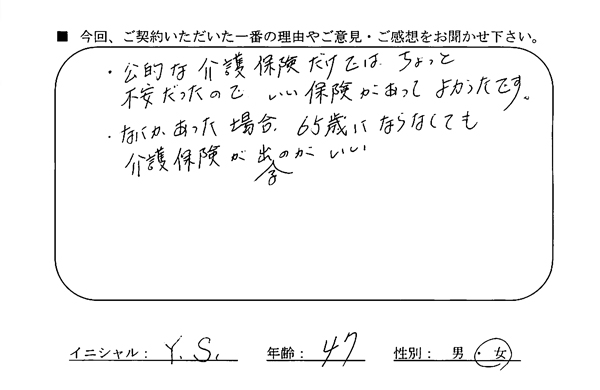 ■ 今回、ご契約いただいた一番の理由やご意見・ご感想をお聞かせ下さい。
・公的な介護保険だけでは ちょっと
不安だったので いい保険があって よかったです。
・なにかあった場合、65歳に ならなくても
介護保険が出るのがいい
イニシャル： Y.S. 年齢： 47 性別： 男・女